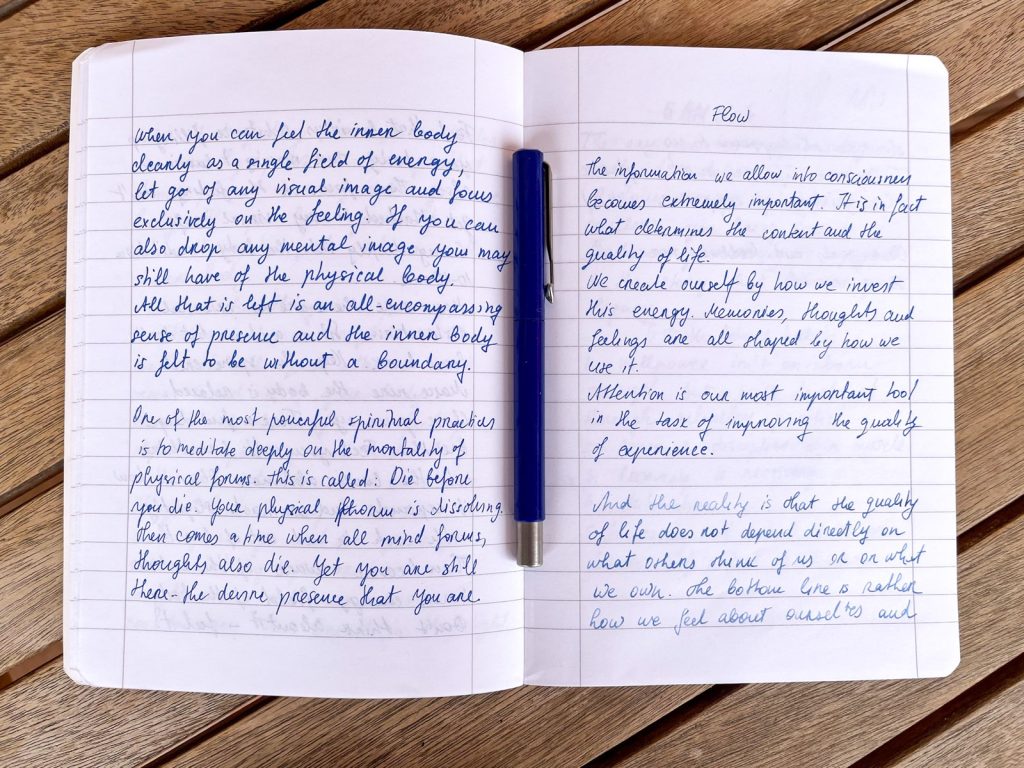 When you can feel the inner body
clearly as a single field of energy,
let go of any visual image and focus
exclusively on the feeling. If you can
also drop any mental image you may
still have of the physical body.
All that is left is an all-encompassing
sense of presence and the inner body
is felt to be without a boundary.
One of the most powerful spiritual practices
is to meditate deeply on the mortality of
physical forms. This is called: Die before
you die. Your physical form is dissolving.
Then comes a time when all mind forms,
thoughts also die. Yet you are still
there - the devine presence that you are.
Flow
The information we allow into consciousness
becomes extremely important. It is in fact
what determines the content and the
quality of life.
We create ourself by how we invest
this energy. Memories, thoughts and
feelings are all shaped by how we
use it.
Attention is our most important tool
in the task of improving the quality
of experience.
And the reality is that the quality
of life does not depend directly on
what others think of us or on what
we own. The bottom line is rather
how we feel about ourselves and